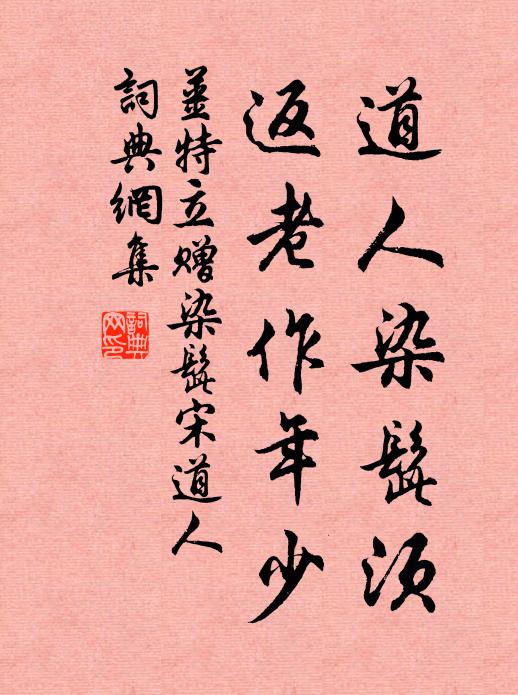 道人染髭須
返老作年少
薑特立贈染髭宋道人
詞典網集
詞典
网印